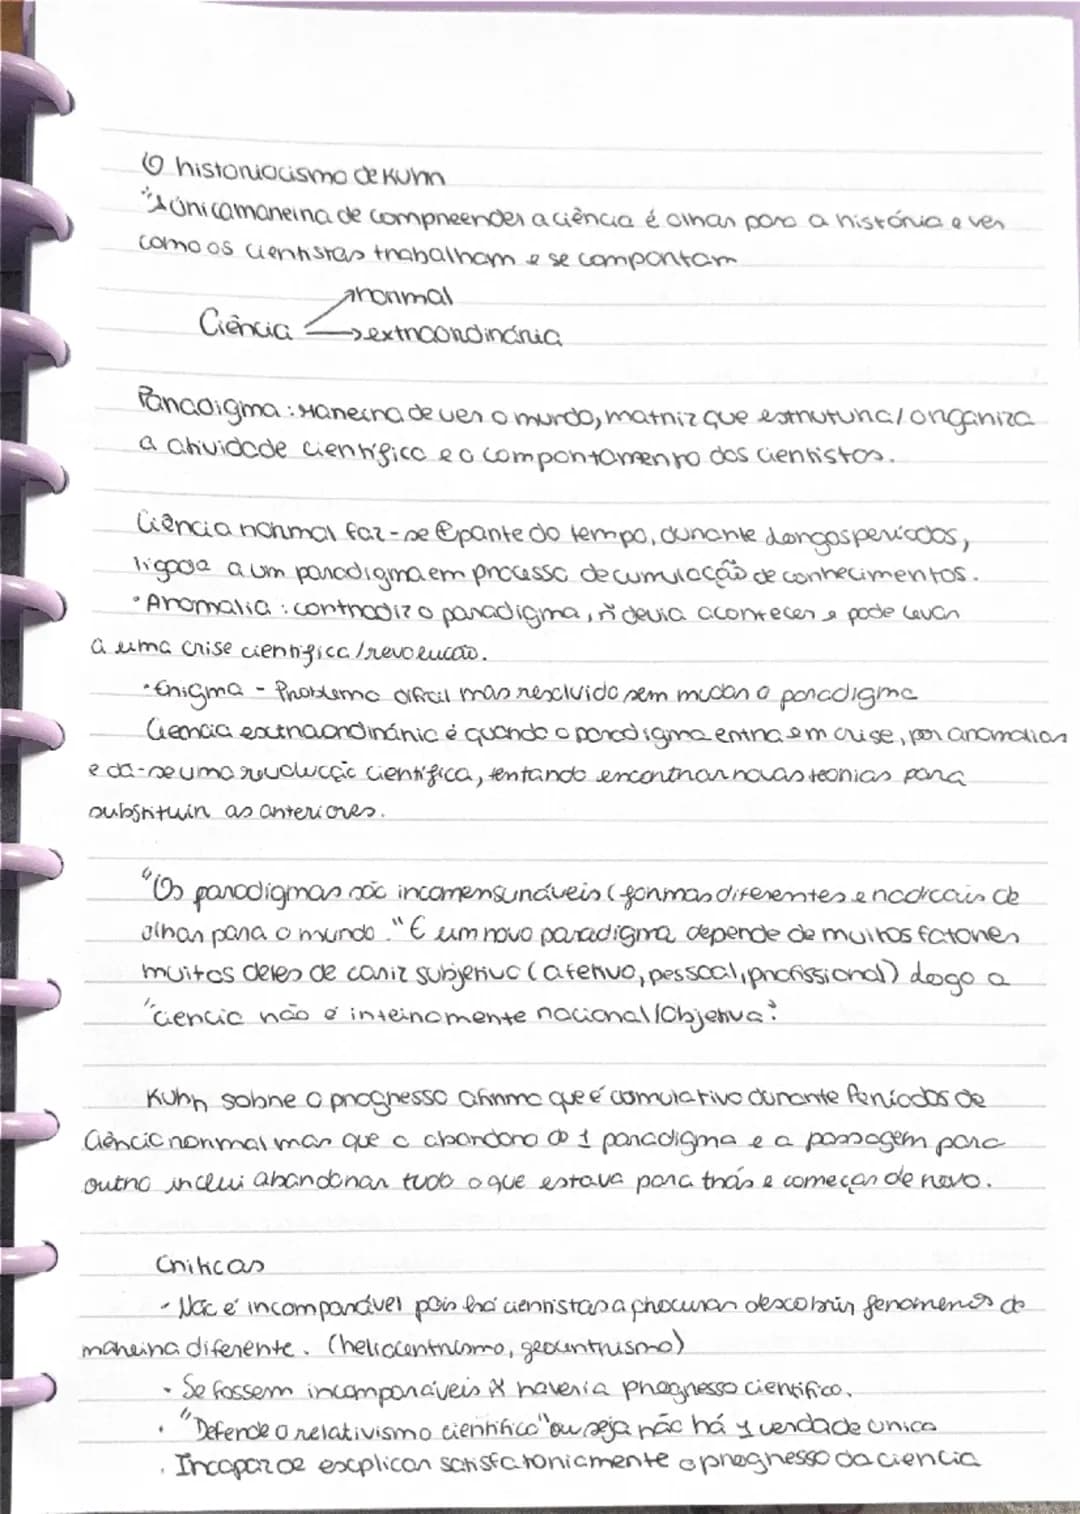 O historiocismo de Kuhn
"A única maneira de compreender a ciência é olhar para a história e ver
como os cientistas trabalham e se comportam
normal
Ciência
extraordinária
Paradigma: Maneira de ver o mundo, matriz que estrutura/organiza
a atividade científica e o comportamento dos cientistas.
Ciência normal faz-se parte do tempo, durante longos períodos,
ligada a um paradigma em processo de cumulação de conhecimentos.
• Anomalia: contradiz o paradigma, ñ devia acontecer e pode levar
a uma crise científica/revolução.
• Enigma - Problema difícil mas resolvido sem mudar o paradigma
Ciencia extraordinária é quando o paradigma entra em crise, por anomalias
e dá-se uma revolução científica, tentando encontrar novas teorias para
substituir as anteriores.
"Os paradigmas são incomensuráveis (formas diferentes e radicais de
olhar para o mundo." E um novo paradigma depende de muitos fatores
muitos deles de cariz subjetivo (afetivo, pessoal, profissional) logo a
"ciencia não é inteiramente racional/Objetiva".
Kuhn sobre o progresso afirma que é comulativo durante Períodos de
Ciência normal mas que o abandono do 1 paradigma e a passagem para
outro inclui abandonar tudo o que estava para trás e começar de novo.
Criticas
- Não é incomparável pois há cientistas a procurar descobrir fenomenos de
maneira diferente. (heliocentrismo, geocentrismo)
• Se fossem incomparáveis ñ haveria progresso científico.
• "Defende o relativismo científico" ou seja não há 1 verdade unica
. Incapaz de explicar satisfatoriamente o progresso da ciencia